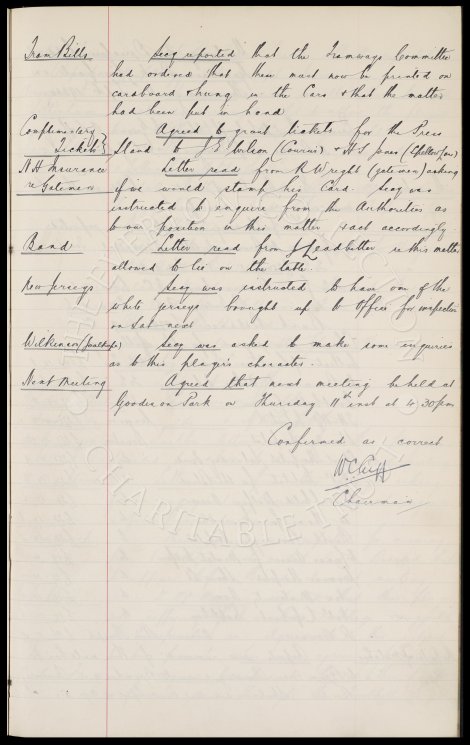 Tram Bills Secy reported that the Tramways Committee
had ordered that these must now be printed on
cardboard & hung in the Cars & that the matter
had been put in hand
Complimentary Agreed to grant tickets for the Press
Tickets Stand to J E Wilson (Courier) & H L Jones
N H Insurance Letter read from R Wright (gateman) asking
re Gateman if we would stamp his Card. Secy was
instructed to enquire from the Authorities as
to our position in this matter & act accordingly.
Band Letter read from J Leadbetter in this matter
allowed to lie on the table.
New Jerseys Secy was instructed to have one of the
white jerseys bought up to Office for inspection
on Sat next
Wilkinson Secy was asked to make some enquiries
as to this player's character.
Next Meeting Agreed that next meeting be held at
Goodison Park on Thursday 11th inst at 4.30pm
Confirmed as correct
W C Cuff
Chairman
CHARITABLE